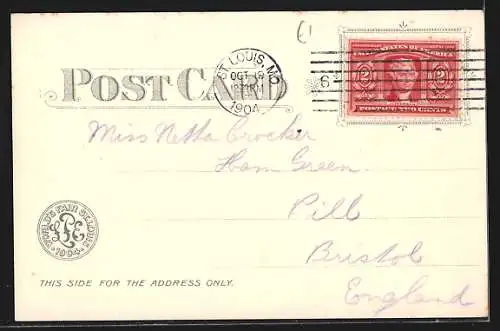 POST CARD
ST. LOUIS, MO.
OCT 19
1904
UNITED STATES OF AMERICA
2 2
POSTAGE TWO CENTS
Miss Netta Crocker
Ham Green
Pill
Bristol
England
WORLD'S FAIR ST. LOUIS
LPE
1904
THIS SIDE FOR THE ADDRESS ONLY.